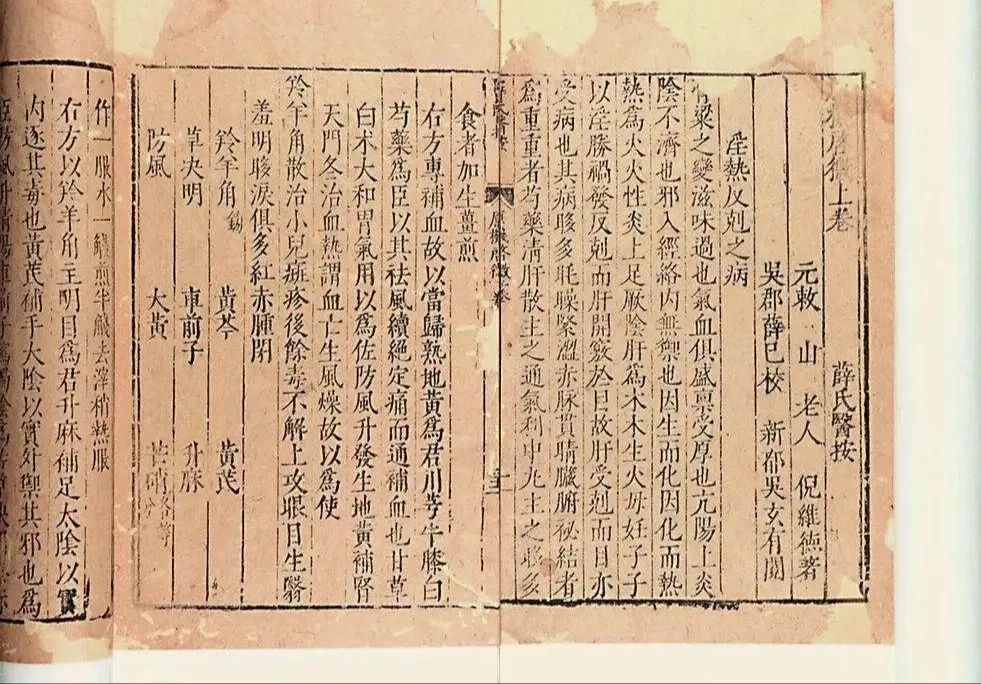 上卷
薛氏醫按
元敕山老人 倪維德著
吳郡薛已校 新都吳玄有閱
淫熱反剋之病
粱之變滋味過也氣血俱盛禀受厚也亢陽上炎
陰不濟也邪入經絡內無禦也因生而化因化而熱
熱為火火性炎上足厥陰肝為木木生火母妊子子
以淫勝禍發反剋而肝開竅於目故肝受剋而目亦
受病也其病眵多眊矂緊澀赤脉貫睛臟腑祕結者
為重重者芍藥清肝散主之通氣利中丸主之眵多
薛氏醫按
原機啟微卷
食者加生薑煎
右方專補血故以當歸熟地黃為君川芎牛膝白
芍藥為臣以其祛風續絕定痛而通補血也甘草
白术大和胃氣用以為佐防風升發生地黃補腎
天門冬治血熱謂血亡生風燥故以為使
羚羊角散治小兒疵疹後餘毒不解上攻眼目生翳
羞明眵淚俱多紅赤腫閉
羚羊角鎊 黃芩 黃芪
草決明 車前子 升麻
防風 大黃 芒硝
作一服水一盞煎半盞去滓稍熱服
右方以羚羊角主明目為君升麻補足太陰以實
內逐其毒也黃芪補手太陰以實外禦其邪也為